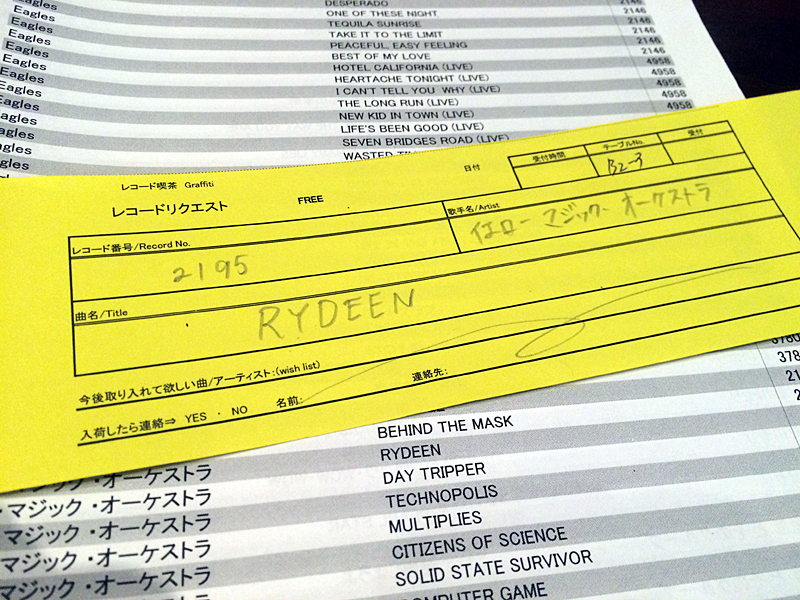 Eagles DESPERADO 2146
Eagles ONE OF THESE NIGHT 2146
Eagles TEQUILA SUNRISE 2146
Eagles TAKE IT TO THE LIMIT 2146
Eagles PEACEFUL, EASY FEELING 2146
Eagles BEST OF MY LOVE 2146
Eagles HOTEL CALIFORNIA (LIVE) 4958
Eagles HEARTACHE TONIGHT (LIVE) 4958
Eagles I CAN'T TELL YOU WHY (LIVE) 4958
Eagles THE LONG RUN (LIVE) 4958
NEW KID IN TOWN (LIVE)
LIFE'S BEEN GOOD (LIVE)
SEVEN BRIDGES ROAD (LIVE)
WASTED
レコード喫茶 Graffiti
レコードリクエスト FREE 日付
受付時間 テーブルNo. 受付
B2-3
レコード番号/Record No. 歌手名/Artist
2195 イエロー マジック オーケストラ
曲名/Title
RYDEEN
今後取り入れて欲しい曲/アーティスト:(wish list)
入荷したら連絡⇒ YES ・ NO 名前: 連絡先:
378
BEHIND THE MASK
マジック・オーケストラ RYDEEN
マジック・オーケストラ DAY TRIPPER
マジック・オーケストラ TECHNOPOLIS
マジック・オーケストラ MULTIPLIES
マジック・オーケストラ CITIZENS OF SCIENCE
SOLID STATE SURVIVOR
COMPUTER GAME